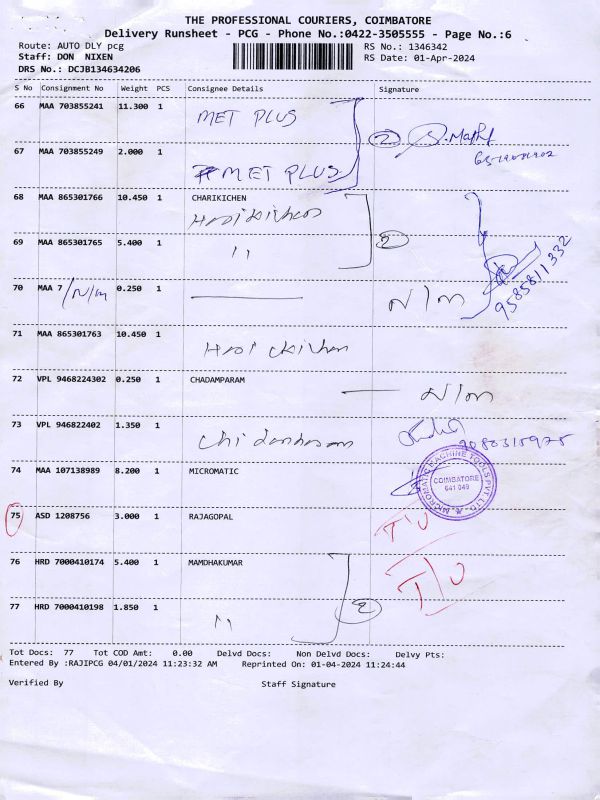 THE PROFESSIONAL COURIERS, COIMBATORE
Delivery Runsheet - PCG - Phone No.:0422-3505555 - Page No.:6
Route: AUTO DLY pcg
Staff: DON NIXEN
DRS No.: DCJB134634206
RS No.: 1346342
RS Date: 01-Apr-2024
S No Consignment No Weight PCS Consignee Details Signature
66 MAA 703855241 11.300 1 MET PLUS
2 S.Math
67 MAA 703855249 2.000 1 MET PLUS
68 MAA 865301766 10.450 1 CHARIKICHEN
69 MAA 865301765 5.400 1 11
2
9585811332
70 MAA 7 /N/m 0.250 1 N/m
71 MAA 865301763 10.450 1
72 VPL 9468224302 0.250 1 CHADAMPARAM N/m
73 VPL 946822402 1.350 1
9080315975
74 MAA 107138989 8.200 1 MICROMATIC
MICROMATIC MACHINE TOOLS PVT LTD
COIMBATORE
641 049
75 ASD 1208756 3.000 1 RAJAGOPAL T/U
76 HRD 7000410174 5.400 1 MAMDHAKUMAR T/U
77 HRD 7000410198 1.850 1 11
2
Tot Docs: 77 Tot COD Amt: 0.00 Delvd Docs: Non Delvd Docs: Delvy Pts:
Entered By :RAJIPCG 04/01/2024 11:23:32 AM Reprinted On: 01-04-2024 11:24:44
Verified By Staff Signature